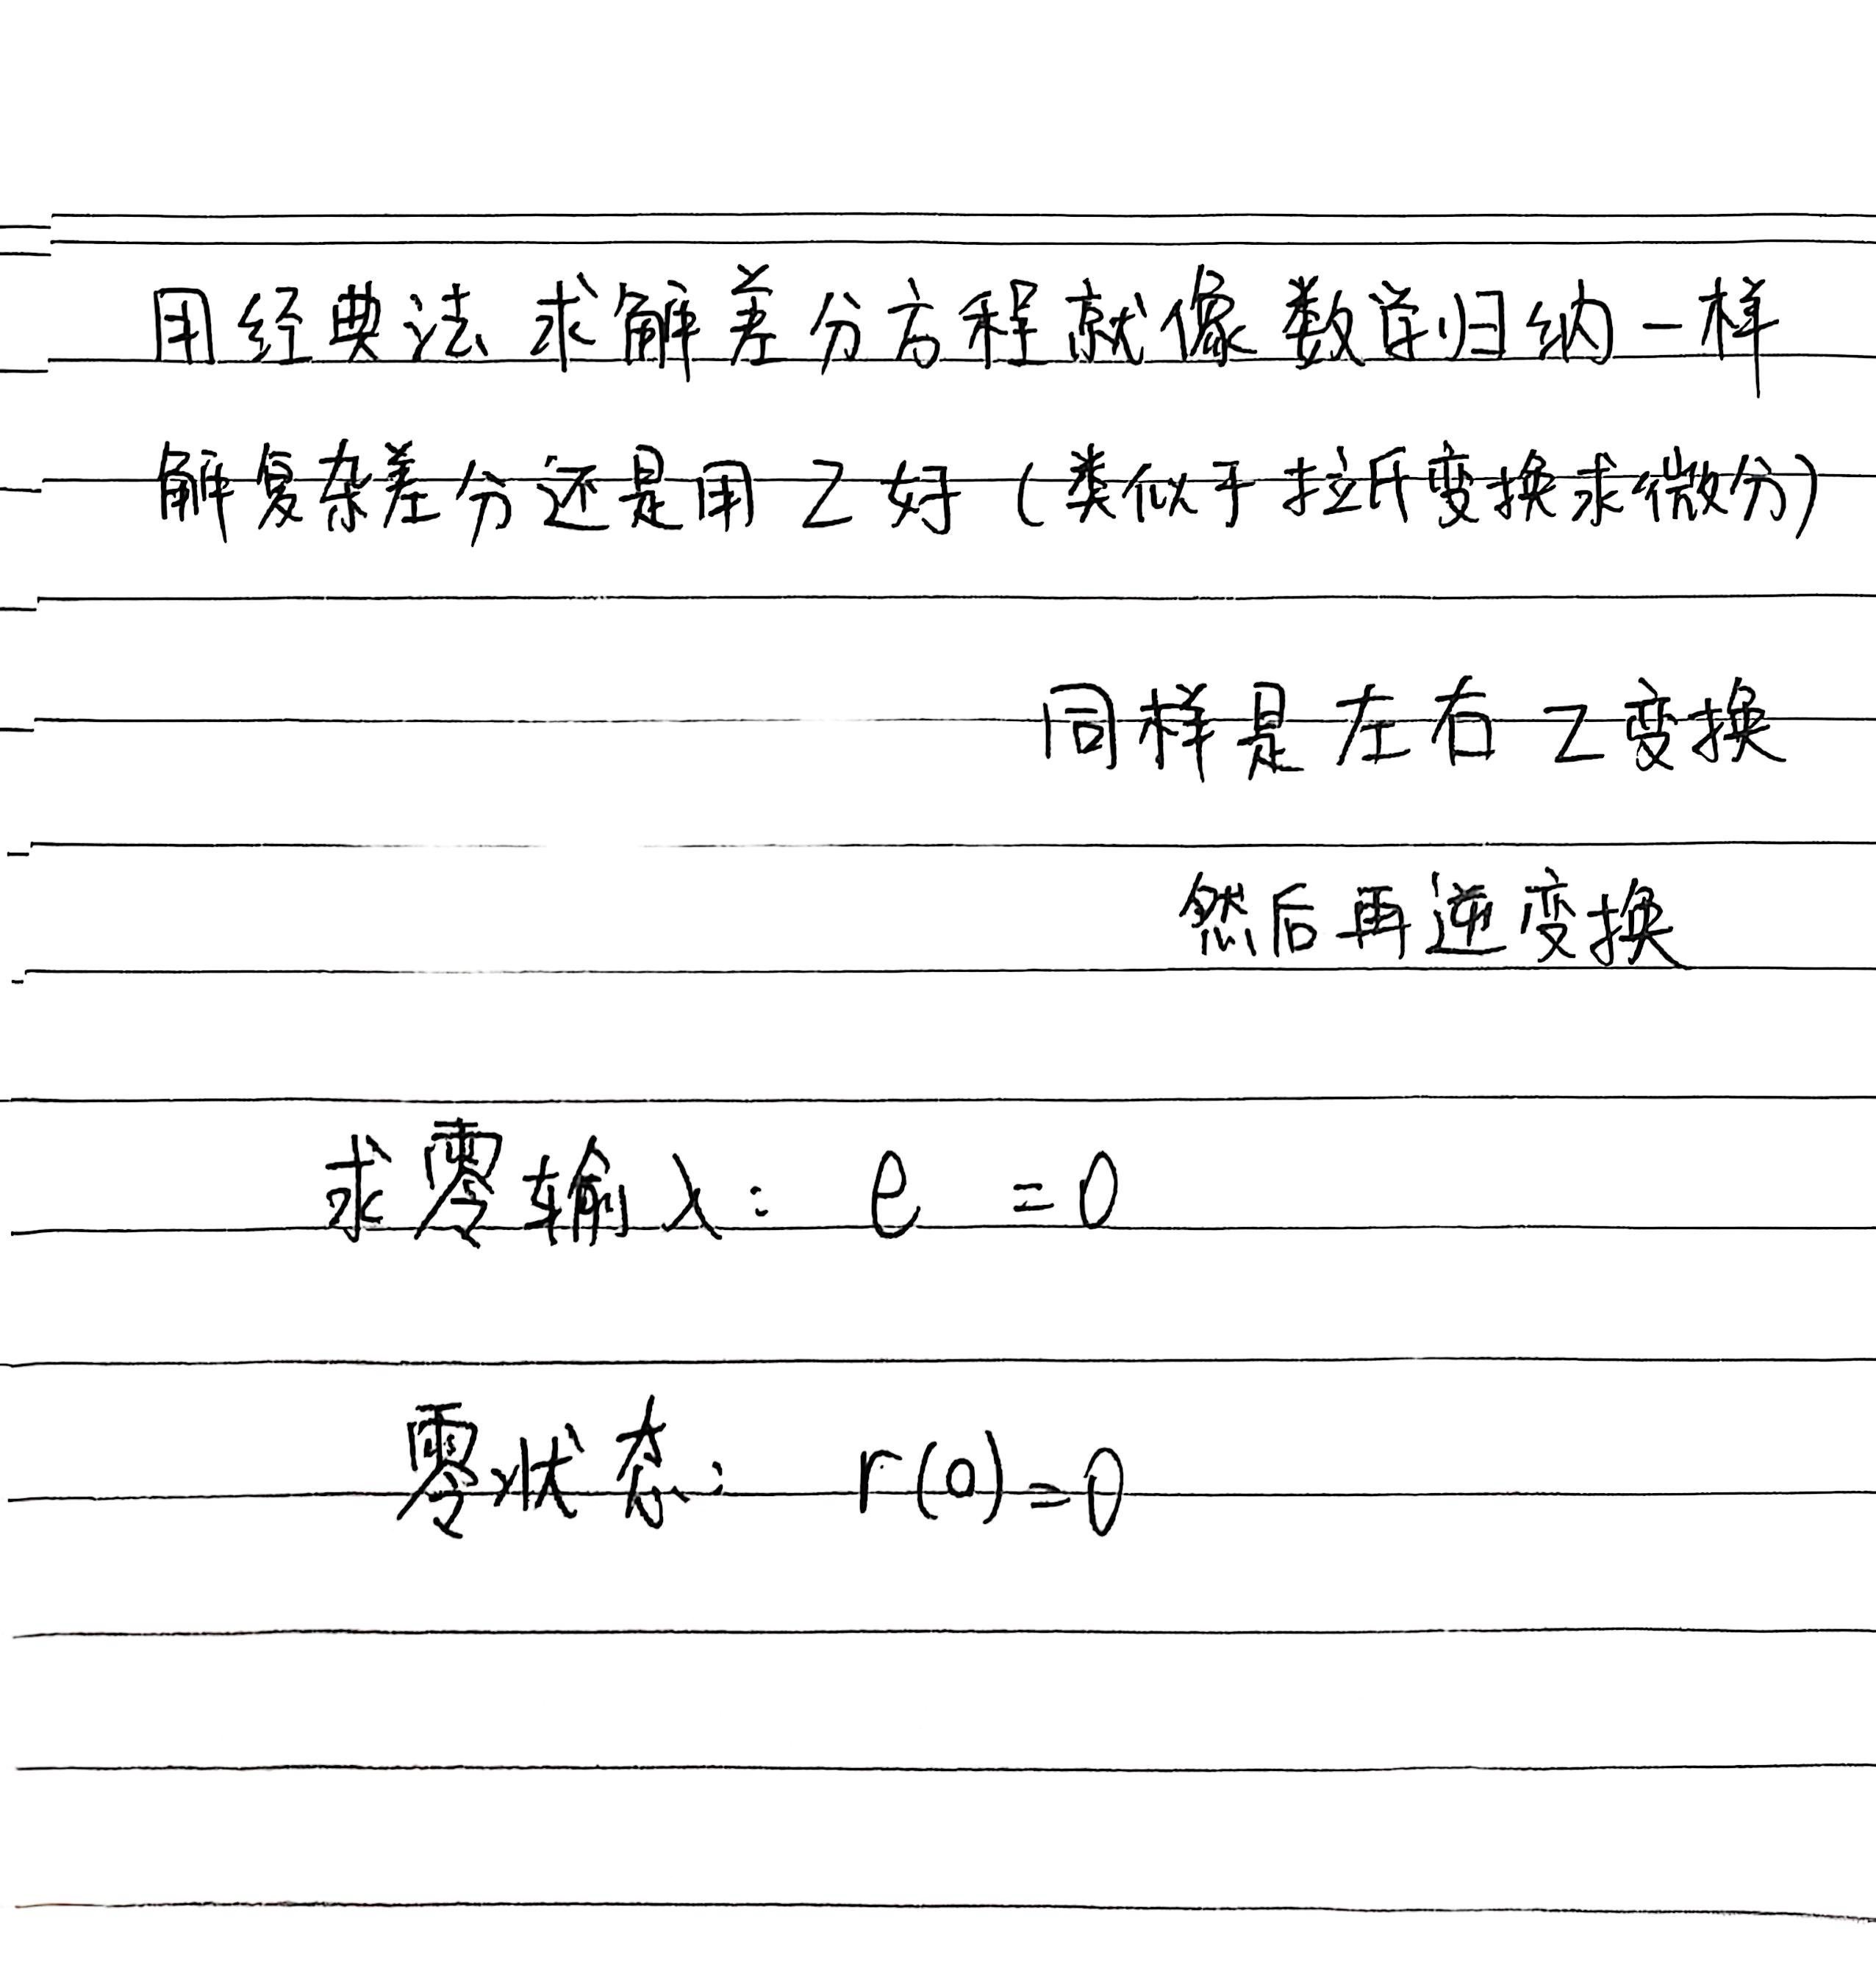 用经典法求解差分方程就像数学归纳一样
解复杂差分还是用Z好(类似于拉氏变换求微分)
同样是左右Z变换
然后再逆变换
求零输入: e =0
零状态: r(0)=0